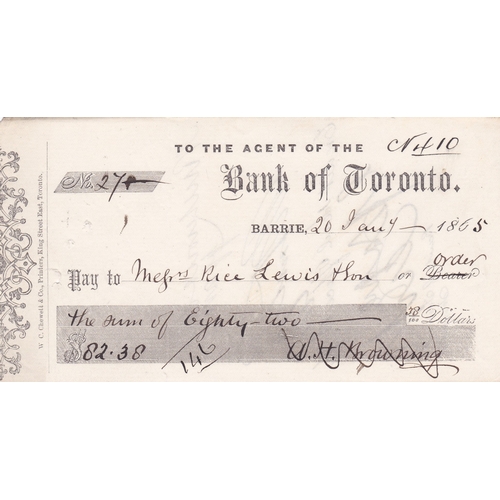 TO THE AGENT OF THE
N410
No. 27
Bank of Toronto.
BARRIE, 20 Jany 1865
order
Pay to Messrs Rice Lewis & Son or Bearer
the sum of Eighty-two 38/100 Dollars
$82.38
141
W. H. Browning
W. C. Chewett & Co., Printers, King Street East, Toronto.